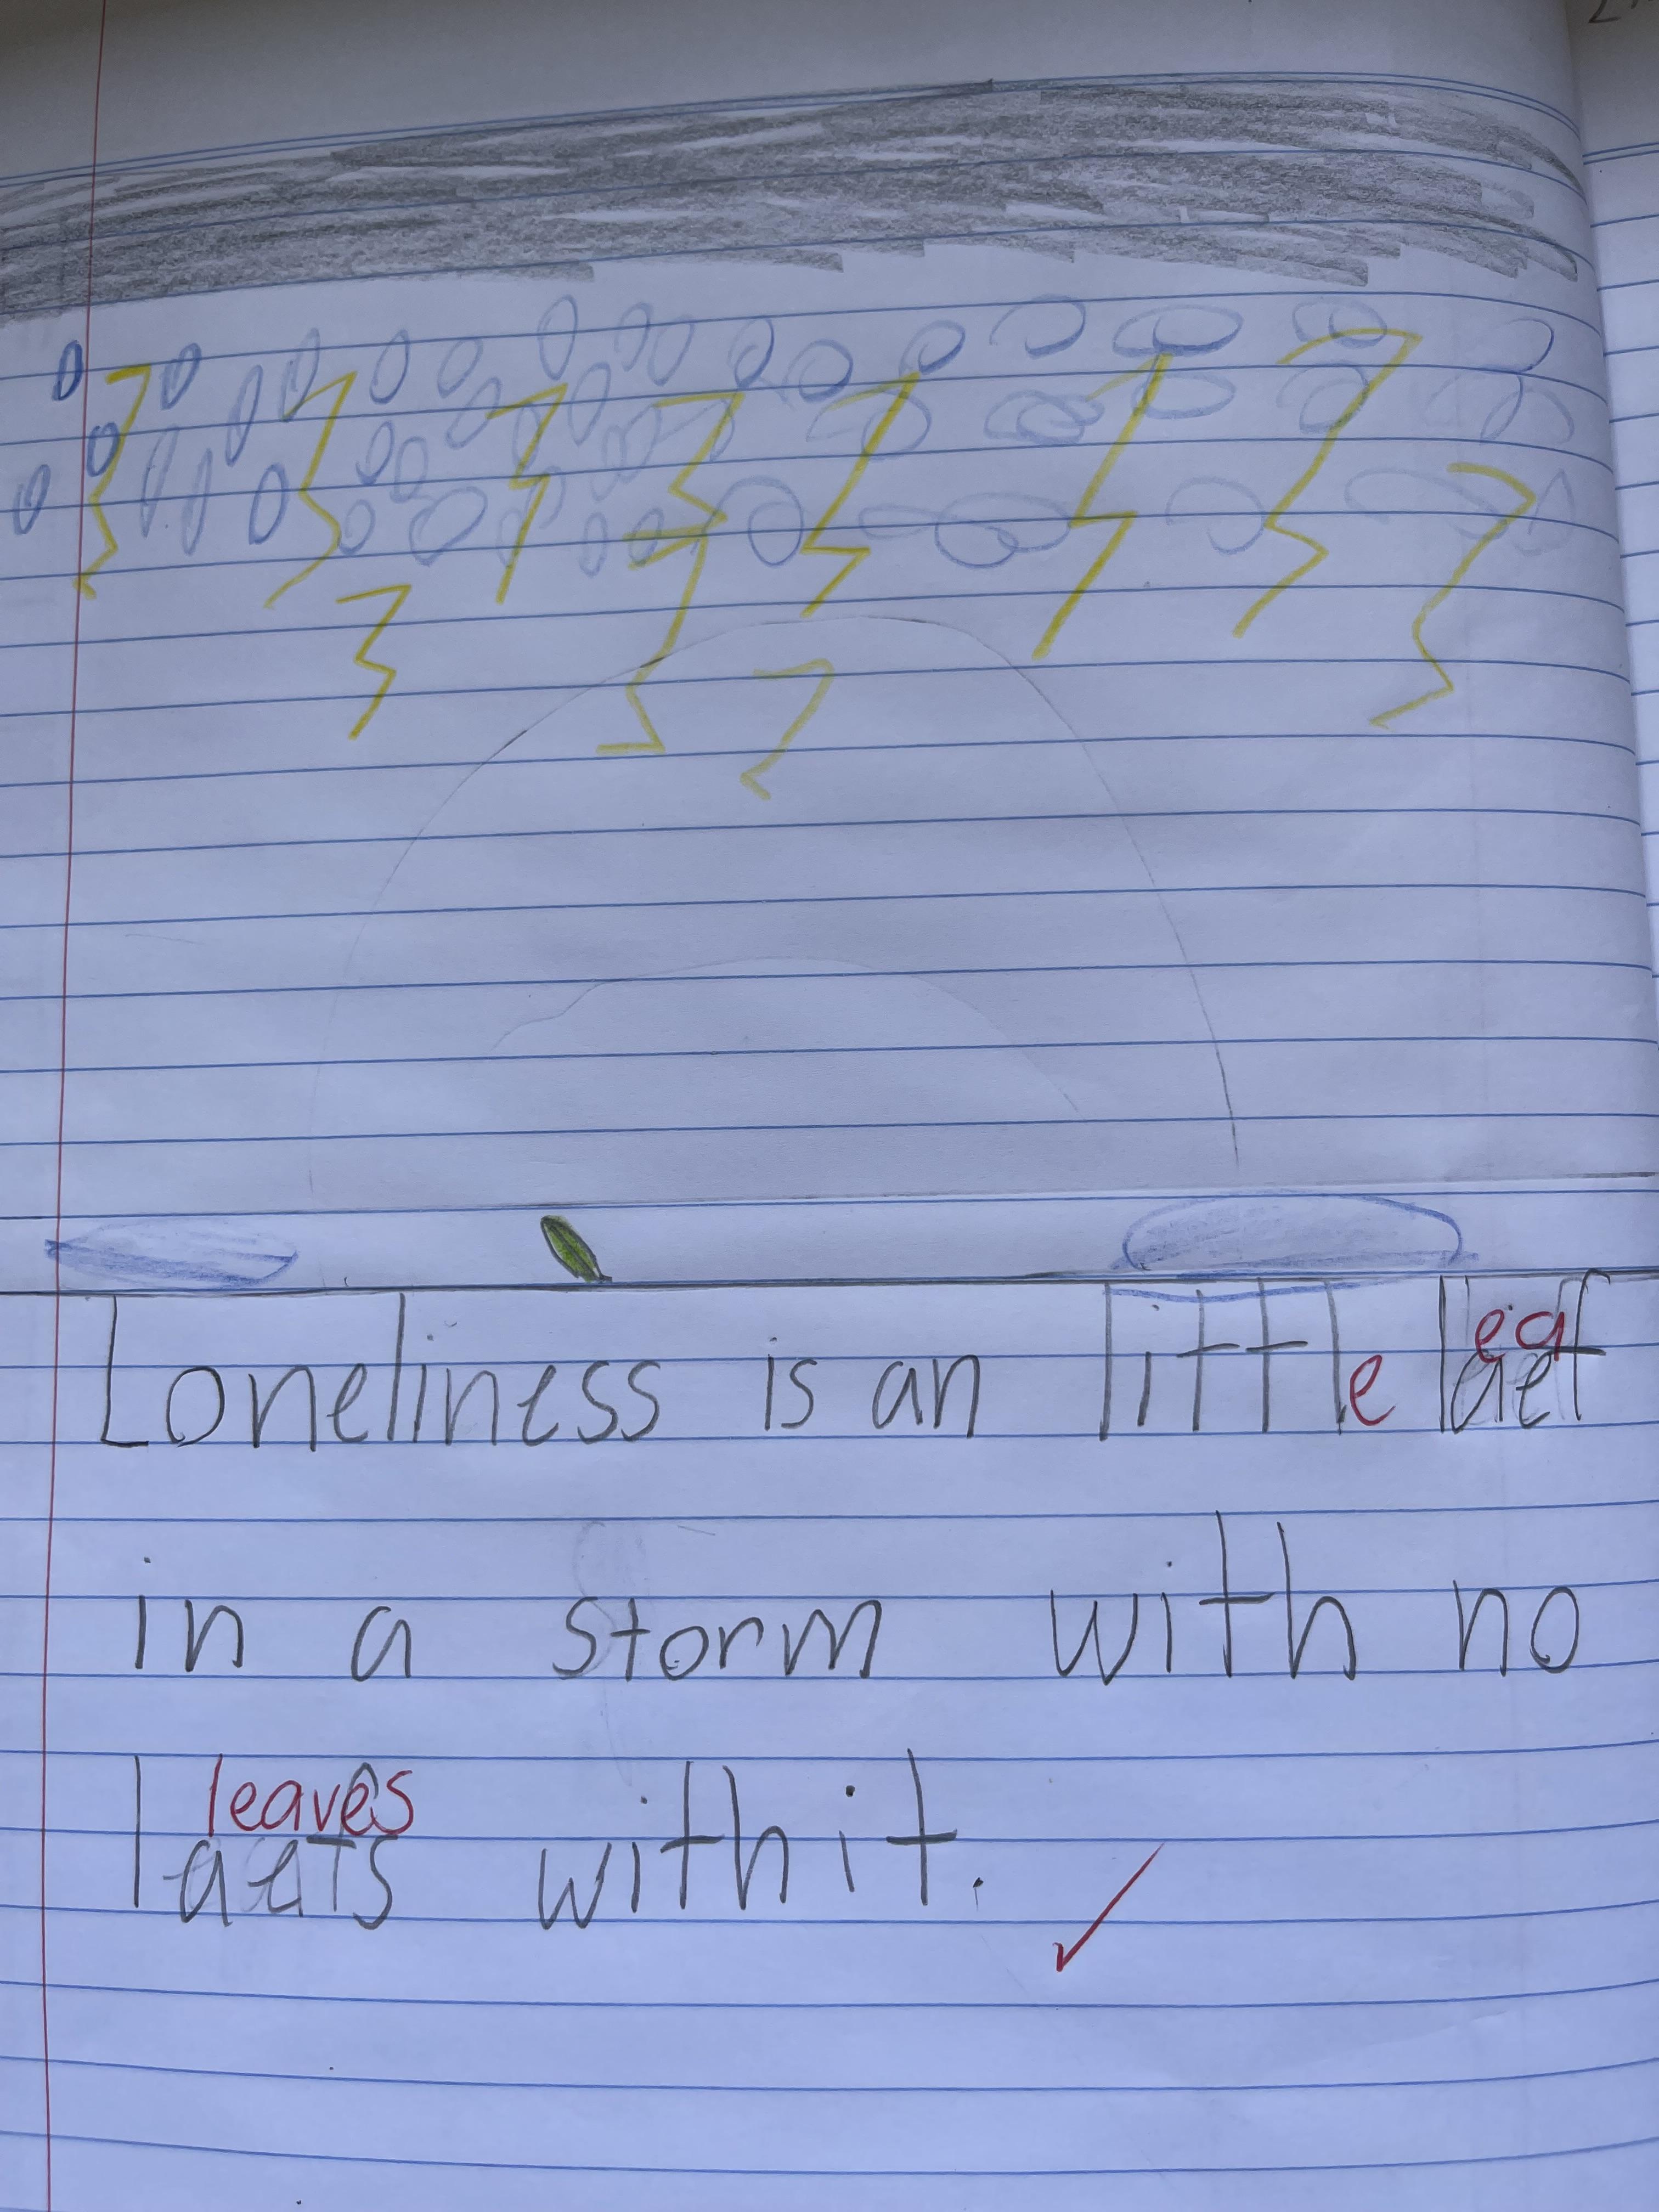 Loneliness is an little laef
ea
in a storm with no
leaves
laefs with it.